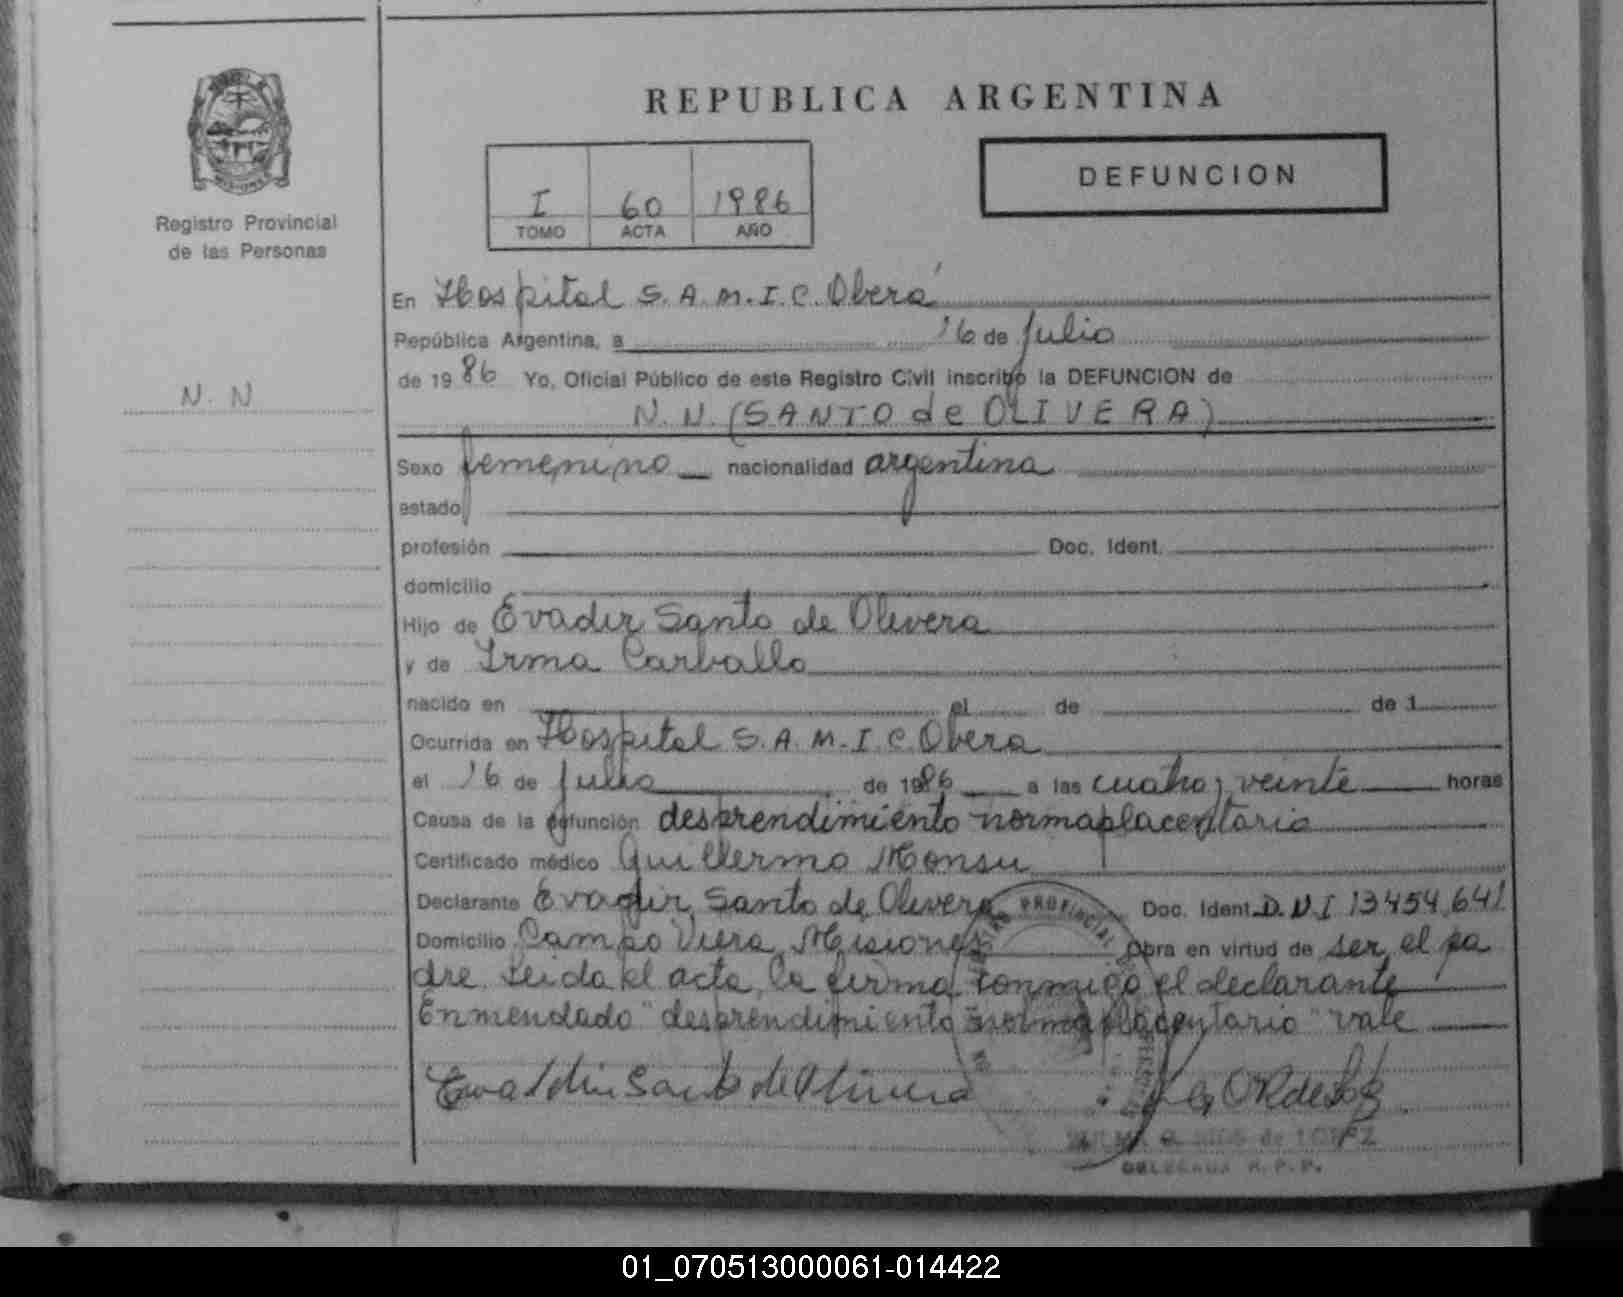 REPUBLICA ARGENTINA
DEFUNCION
I 60 1986
TOMO ACTA AÑO
Registro Provincial
de las Personas
N. N
En Hospital S.A.M.I.C. Oberá
República Argentina, a 16 de julio
de 1986 Yo, Oficial Público de este Registro Civil inscribo la DEFUNCION de
N.N. (SANTO de OLIVERA)
Sexo femenino nacionalidad argentina
estado
profesión Doc. Ident.
domicilio
Hijo de Evadir Santo de Olivera
y de Irma Carballo
nacido en el de de 1
Ocurrida en Hospital S.A.M.I.C. Obera
el 16 de julio de 1986 a las cuatro y veinte horas
Causa de la defunción desprendimiento normaplacentario
Certificado médico Guillermo Monsu
Declarante Evadir Santo de Olivera Doc. Ident. D.N.I 13454.641
Domicilio Campo Viera, Misiones Obra en virtud de ser el pa
dre. Leida el acta, la firma conmigo el declarante
Enmendado "desprendimiento normaplacentario" vale
Santo de Olivera
PROVINCIAL
de LOPEZ
DELEGADA R.P.P.
01_070513000061-014422